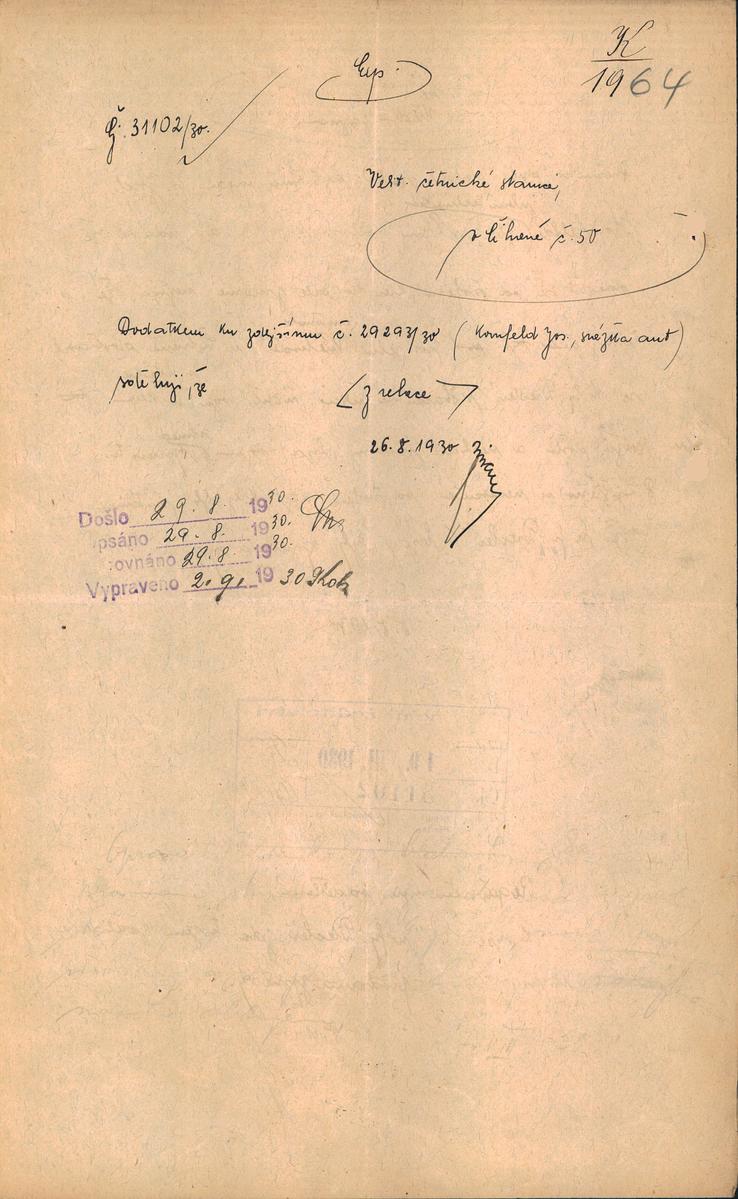 K
1964
Exp.
Č. 31102/30.
Vel. četnické stanici,
v Líhněné č. 50
Dodatkem ku zdejšímu č. 29293/30 (Kornfeld Jos., srážka aut)
sděluji, že (z relace)
26.8.1930
Došlo 29.8. 1930.
psáno 29.8. 1930.
rovnáno 29.8 1930.
Vypraveno 2.9. 1930